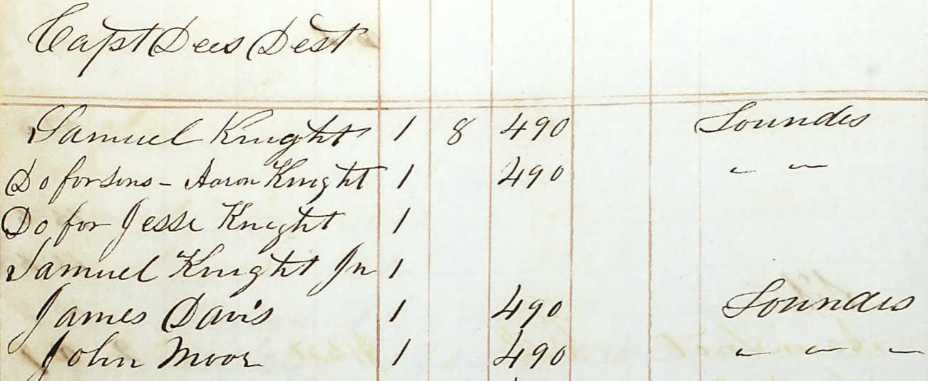 Capt Dees Dest
Samuel Knight 1 8 490 Loundes
Do for sons - Aaron Knight 1 490 " "
Do for Jesse Knight 1
Samuel Knight Jn 1
James Davis 1 490 Loundes
John Moor 1 490 " " "